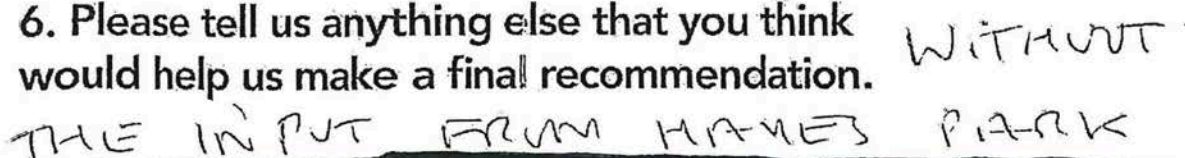 6. Please tell us anything else that you think
would help us make a final recommendation.
WITHOUT
THE INPUT FROM HAMES PARK